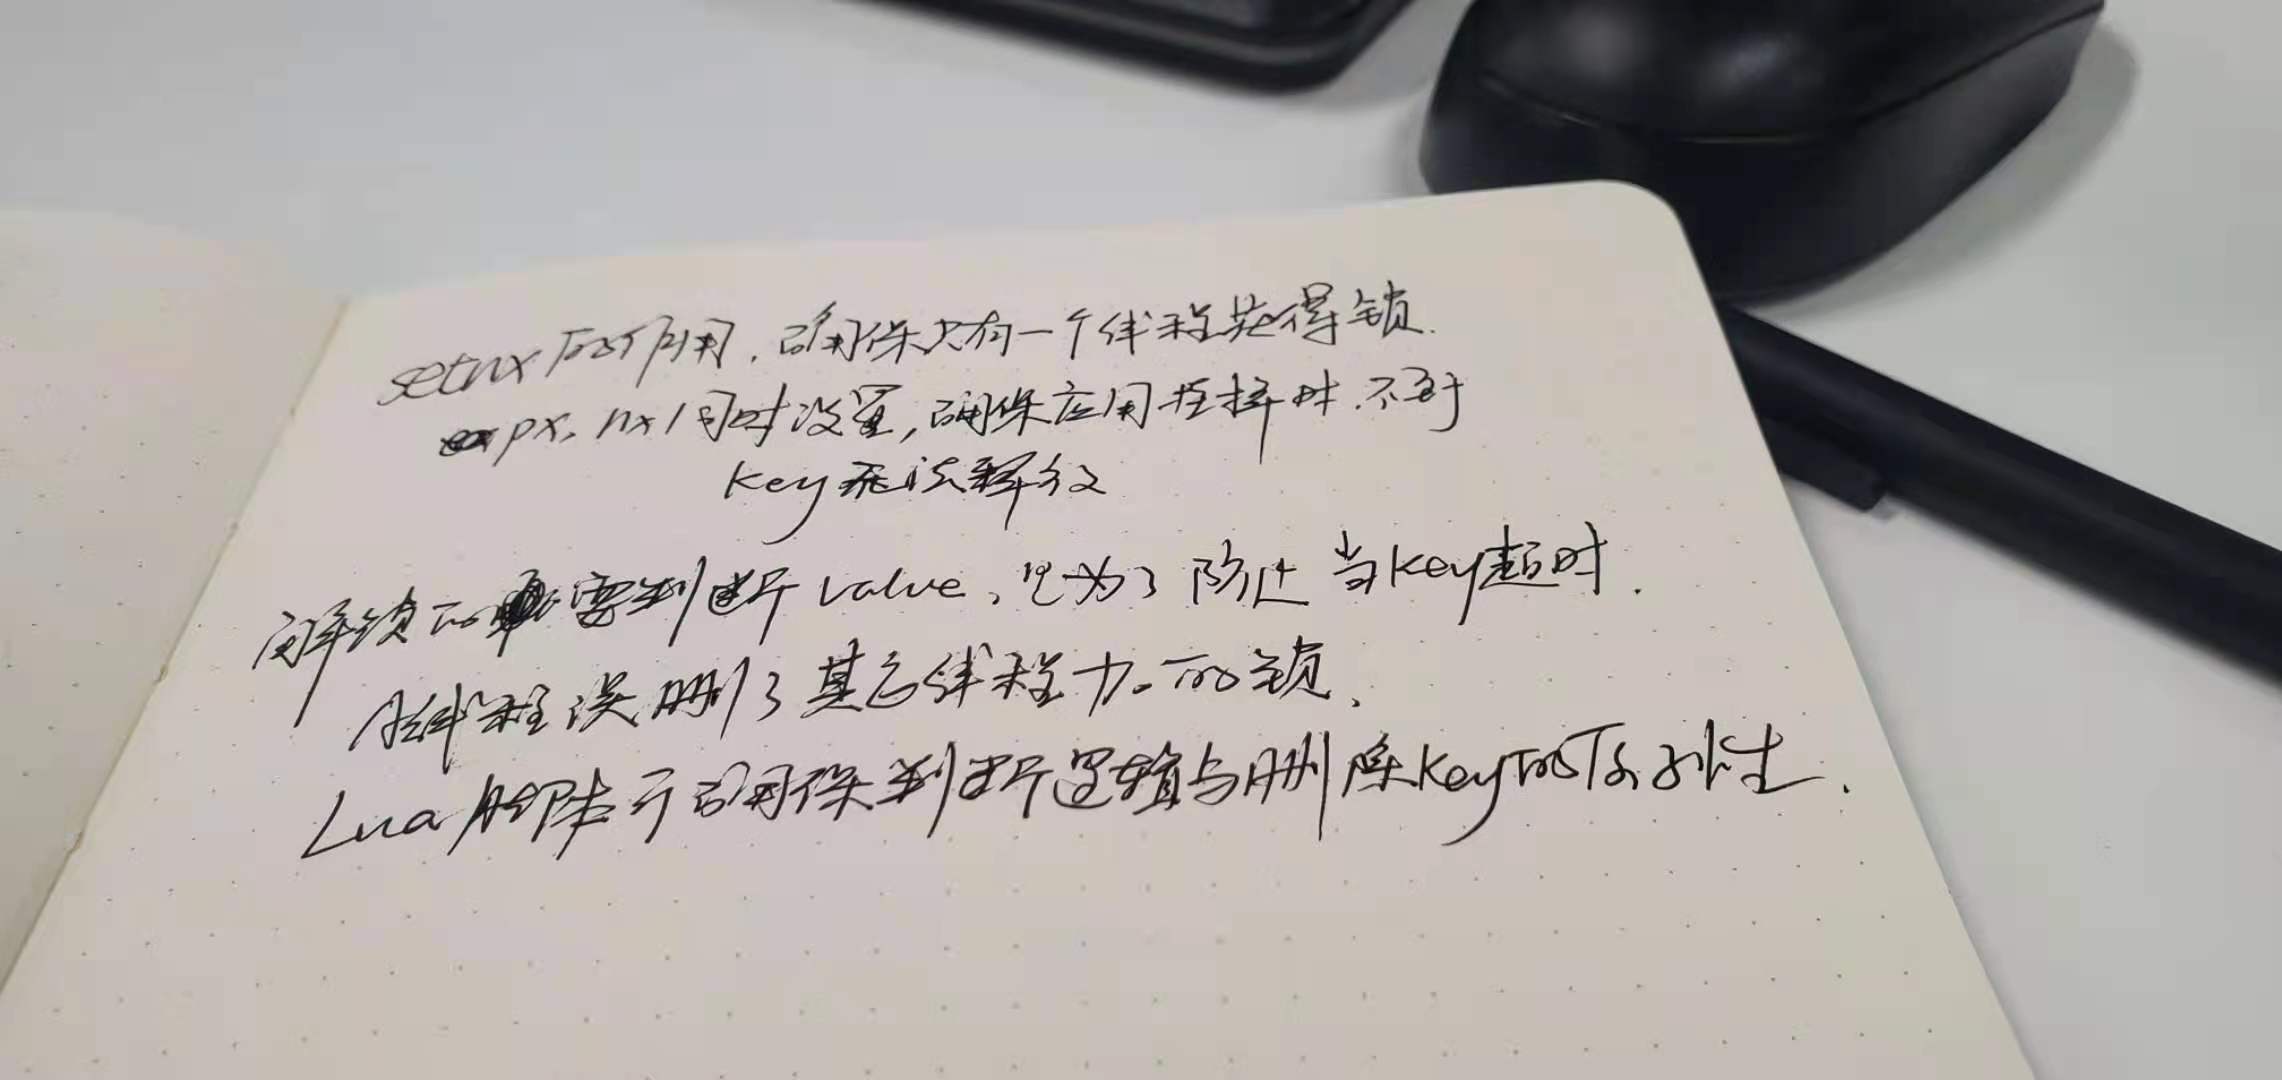 setnx的作用,确保只有一个线程获得锁.
px、nx同时设置,确保应用挂掉时.不至于
key无法释放
解锁的需判断value、是为了防止当key超时.
线程误删了其它线程加的锁.
Lua脚本可确保判断逻辑与删除key的原子性.